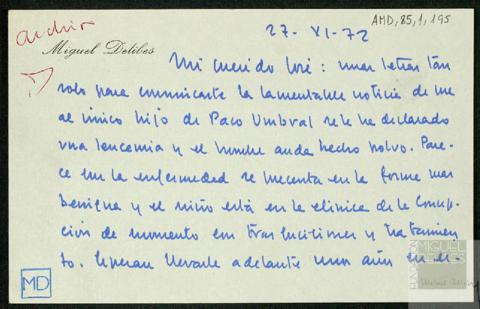 AMD,85,1,195
27-XI-72
archivo
Miguel Delibes
Mi querido José: unas letras tan
solo para comunicarte la lamentable noticia de que
al único hijo de Paco Umbral se le ha declarado
una leucemia y el hombre anda hecho polvo. Pare-
ce que la enfermedad se presenta en la forma mas
benigna y el niño está en la clínica de la Concep-
ción de momento con transfusiones y tratamien
to. Esperan llevarle adelante unos años en es-
MD
FUNDACIÓN
MIGUEL
DELIBES